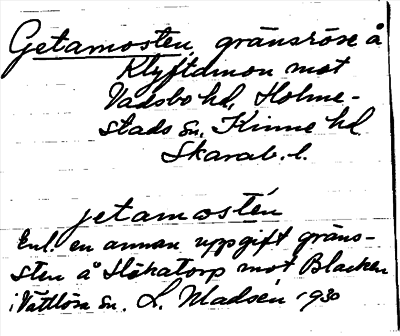 Getamosten, gränsröse å
Klyftamon mot
Vadsbo hd, Holme-
stads sn, Kinne hd
Skarab. l.
jetamostén
Enl. en annan uppgift gräns-
sten å Stökatorp mot Blacken
i Vättlösa sn. L. Madsén 1930